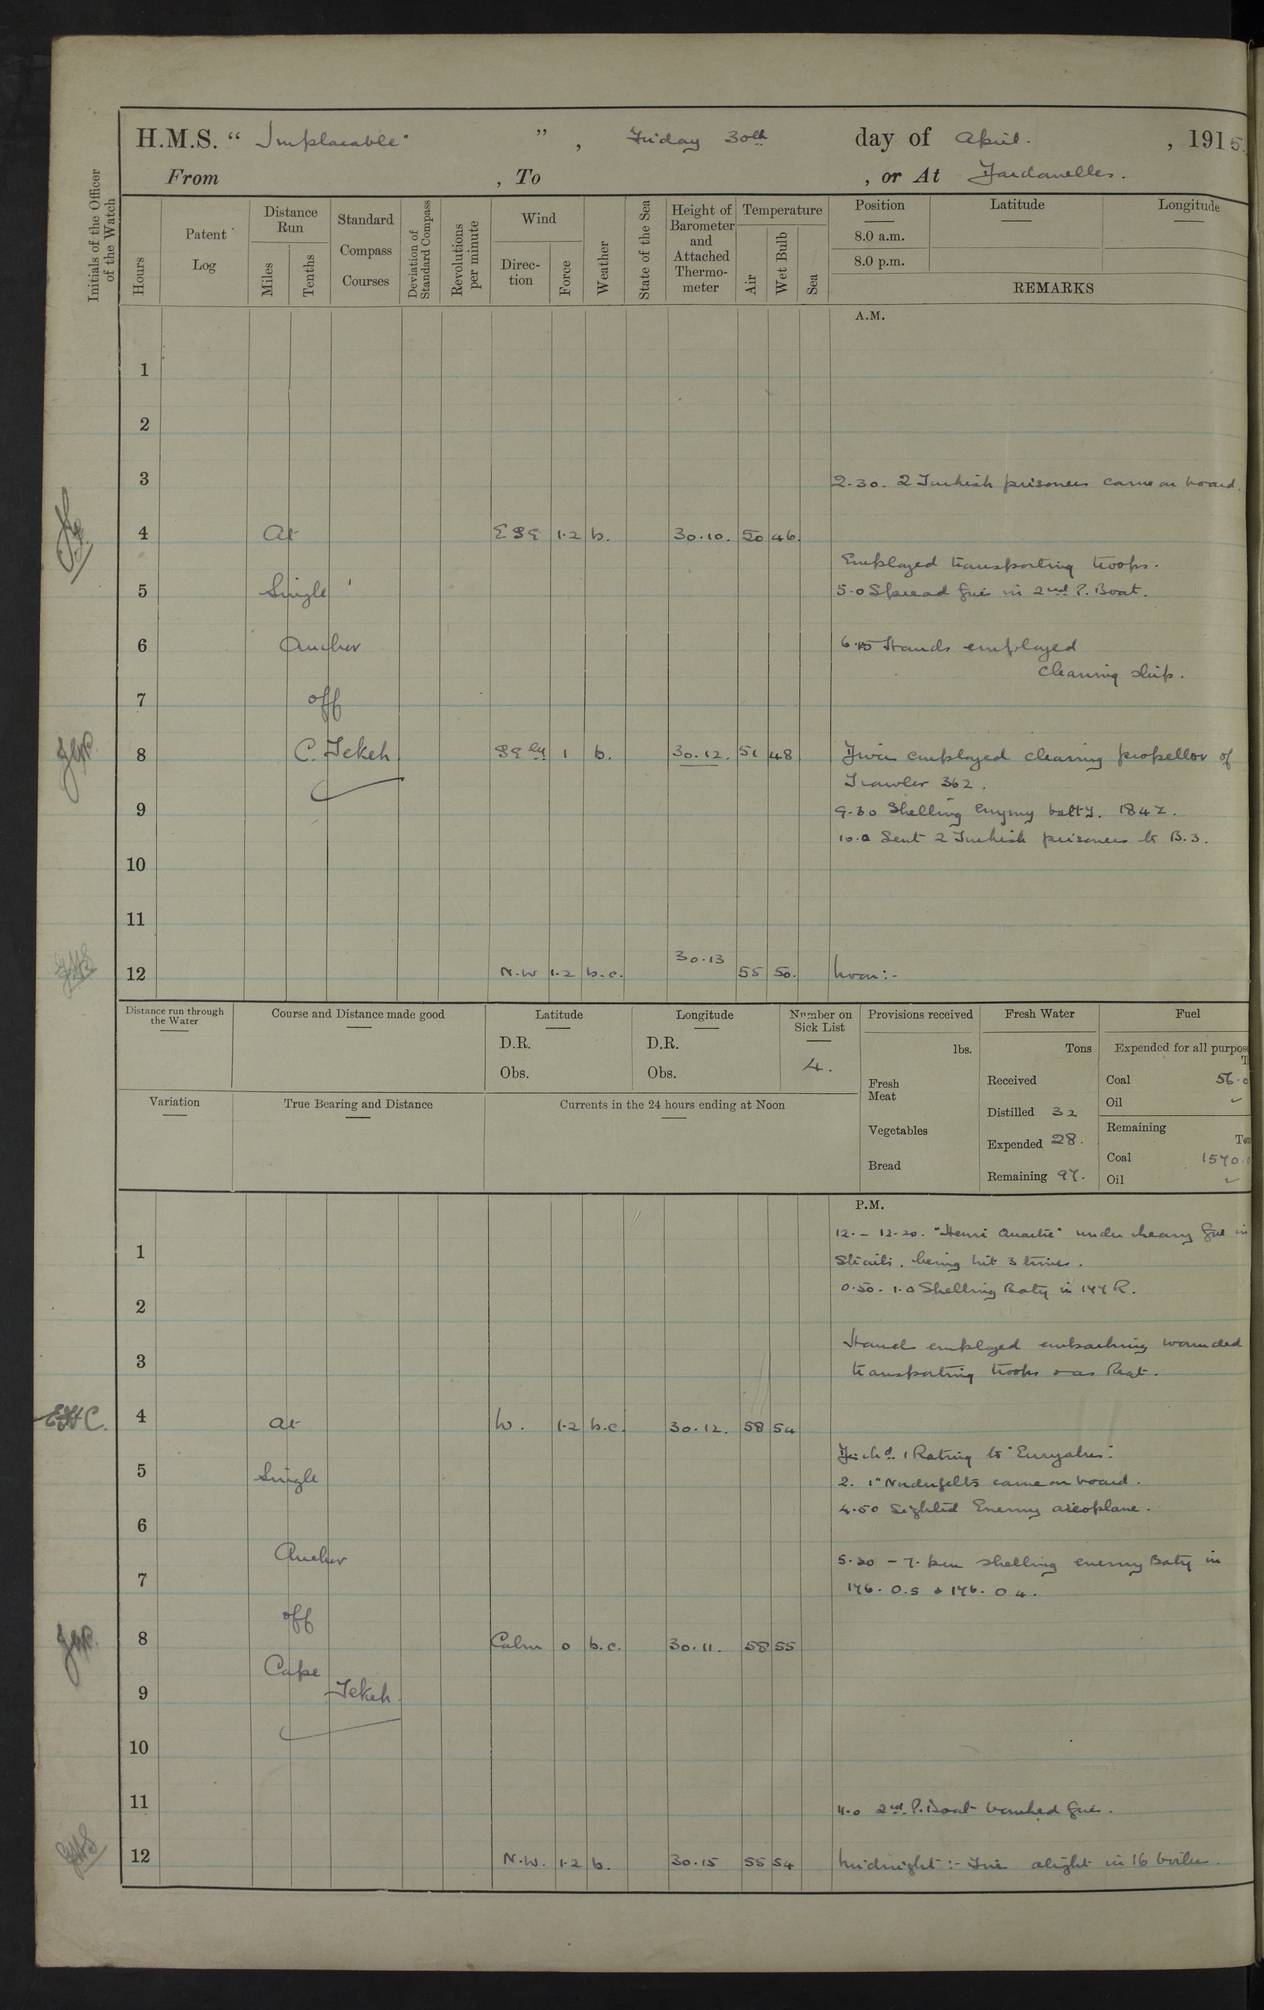 H.M.S. " Implacable " , Friday 30th day of April. , 1915.
From , To , or At Dardanelles.
Initials of the Officer of the Watch
Hours
Patent Log
Distance Run
Miles
Tenths
Standard Compass Courses
Deviation of Standard Compass
Revolutions per minute
Wind
Direc-tion
Force
Weather
State of the Sea
Height of Barometer and Attached Thermo-meter
Temperature
Air
Wet Bulb
Sea
Position
8.0 a.m.
8.0 p.m.
Latitude
Longitude
REMARKS
A.M.
1
2
3 2.30. 2 Turkish prisoners came on board.
4 At ESE 1.2 b. 30.10. 50 46.
Employed transporting troops.
5 Single 5.0 Spread fires in 2nd P. Boat.
6 Anchor 6.15 Hands employed
cleaning ship.
7 off
8 C. Tekeh SEly 1 b. 30.12. 51 48 Diver employed clearing propellor of
Trawler 362.
9 9.30 Shelling Enymy batty. 184Z.
10.0 Sent 2 Turkish prisoners to B.3.
10
11
12 N.W 1.2 b.c. 30.13 55 50. Noon:-
Distance run through the Water
Course and Distance made good
Latitude
D.R.
Obs.
Longitude
D.R.
Obs.
Number on Sick List
4.
Provisions received
lbs.
Fresh Meat
Vegetables
Bread
Fresh Water
Tons
Received
Distilled 32
Expended 28.
Remaining 97.
Fuel
Expended for all purpos
Coal 56.0
Oil
Remaining
Coal 1570.0
Oil
Variation
True Bearing and Distance
Currents in the 24 hours ending at Noon
P.M.
12. - 12.20. "Henri Quatre" under heavy fire in
1 Straits, being hit 3 times.
0.50 - 1.0 Shelling Baty in 177 R.
2
Hands employed embarking wounded
3 transporting troops & as Reqt.
4 At W. 1.2 b.c. 30.12. 58 54
Disch'd 1 Rating to "Euryalus".
5 Single 2. 1" Nordenfelts came on board.
4.50 Sighted Enemy aeroplane.
6
Anchor 5.20 - 7. pm shelling enemy Baty in
7 176. O.5 & 176. O 4.
off
8 Calm 0 b.c. 30.11. 58 55
Cape
9 Tekeh
10
11 11.0 2nd P. Boat banked fires.
12 N.W. 1.2 b. 30.15 55 54 Midnight:- Fires alight in 16 boilers.